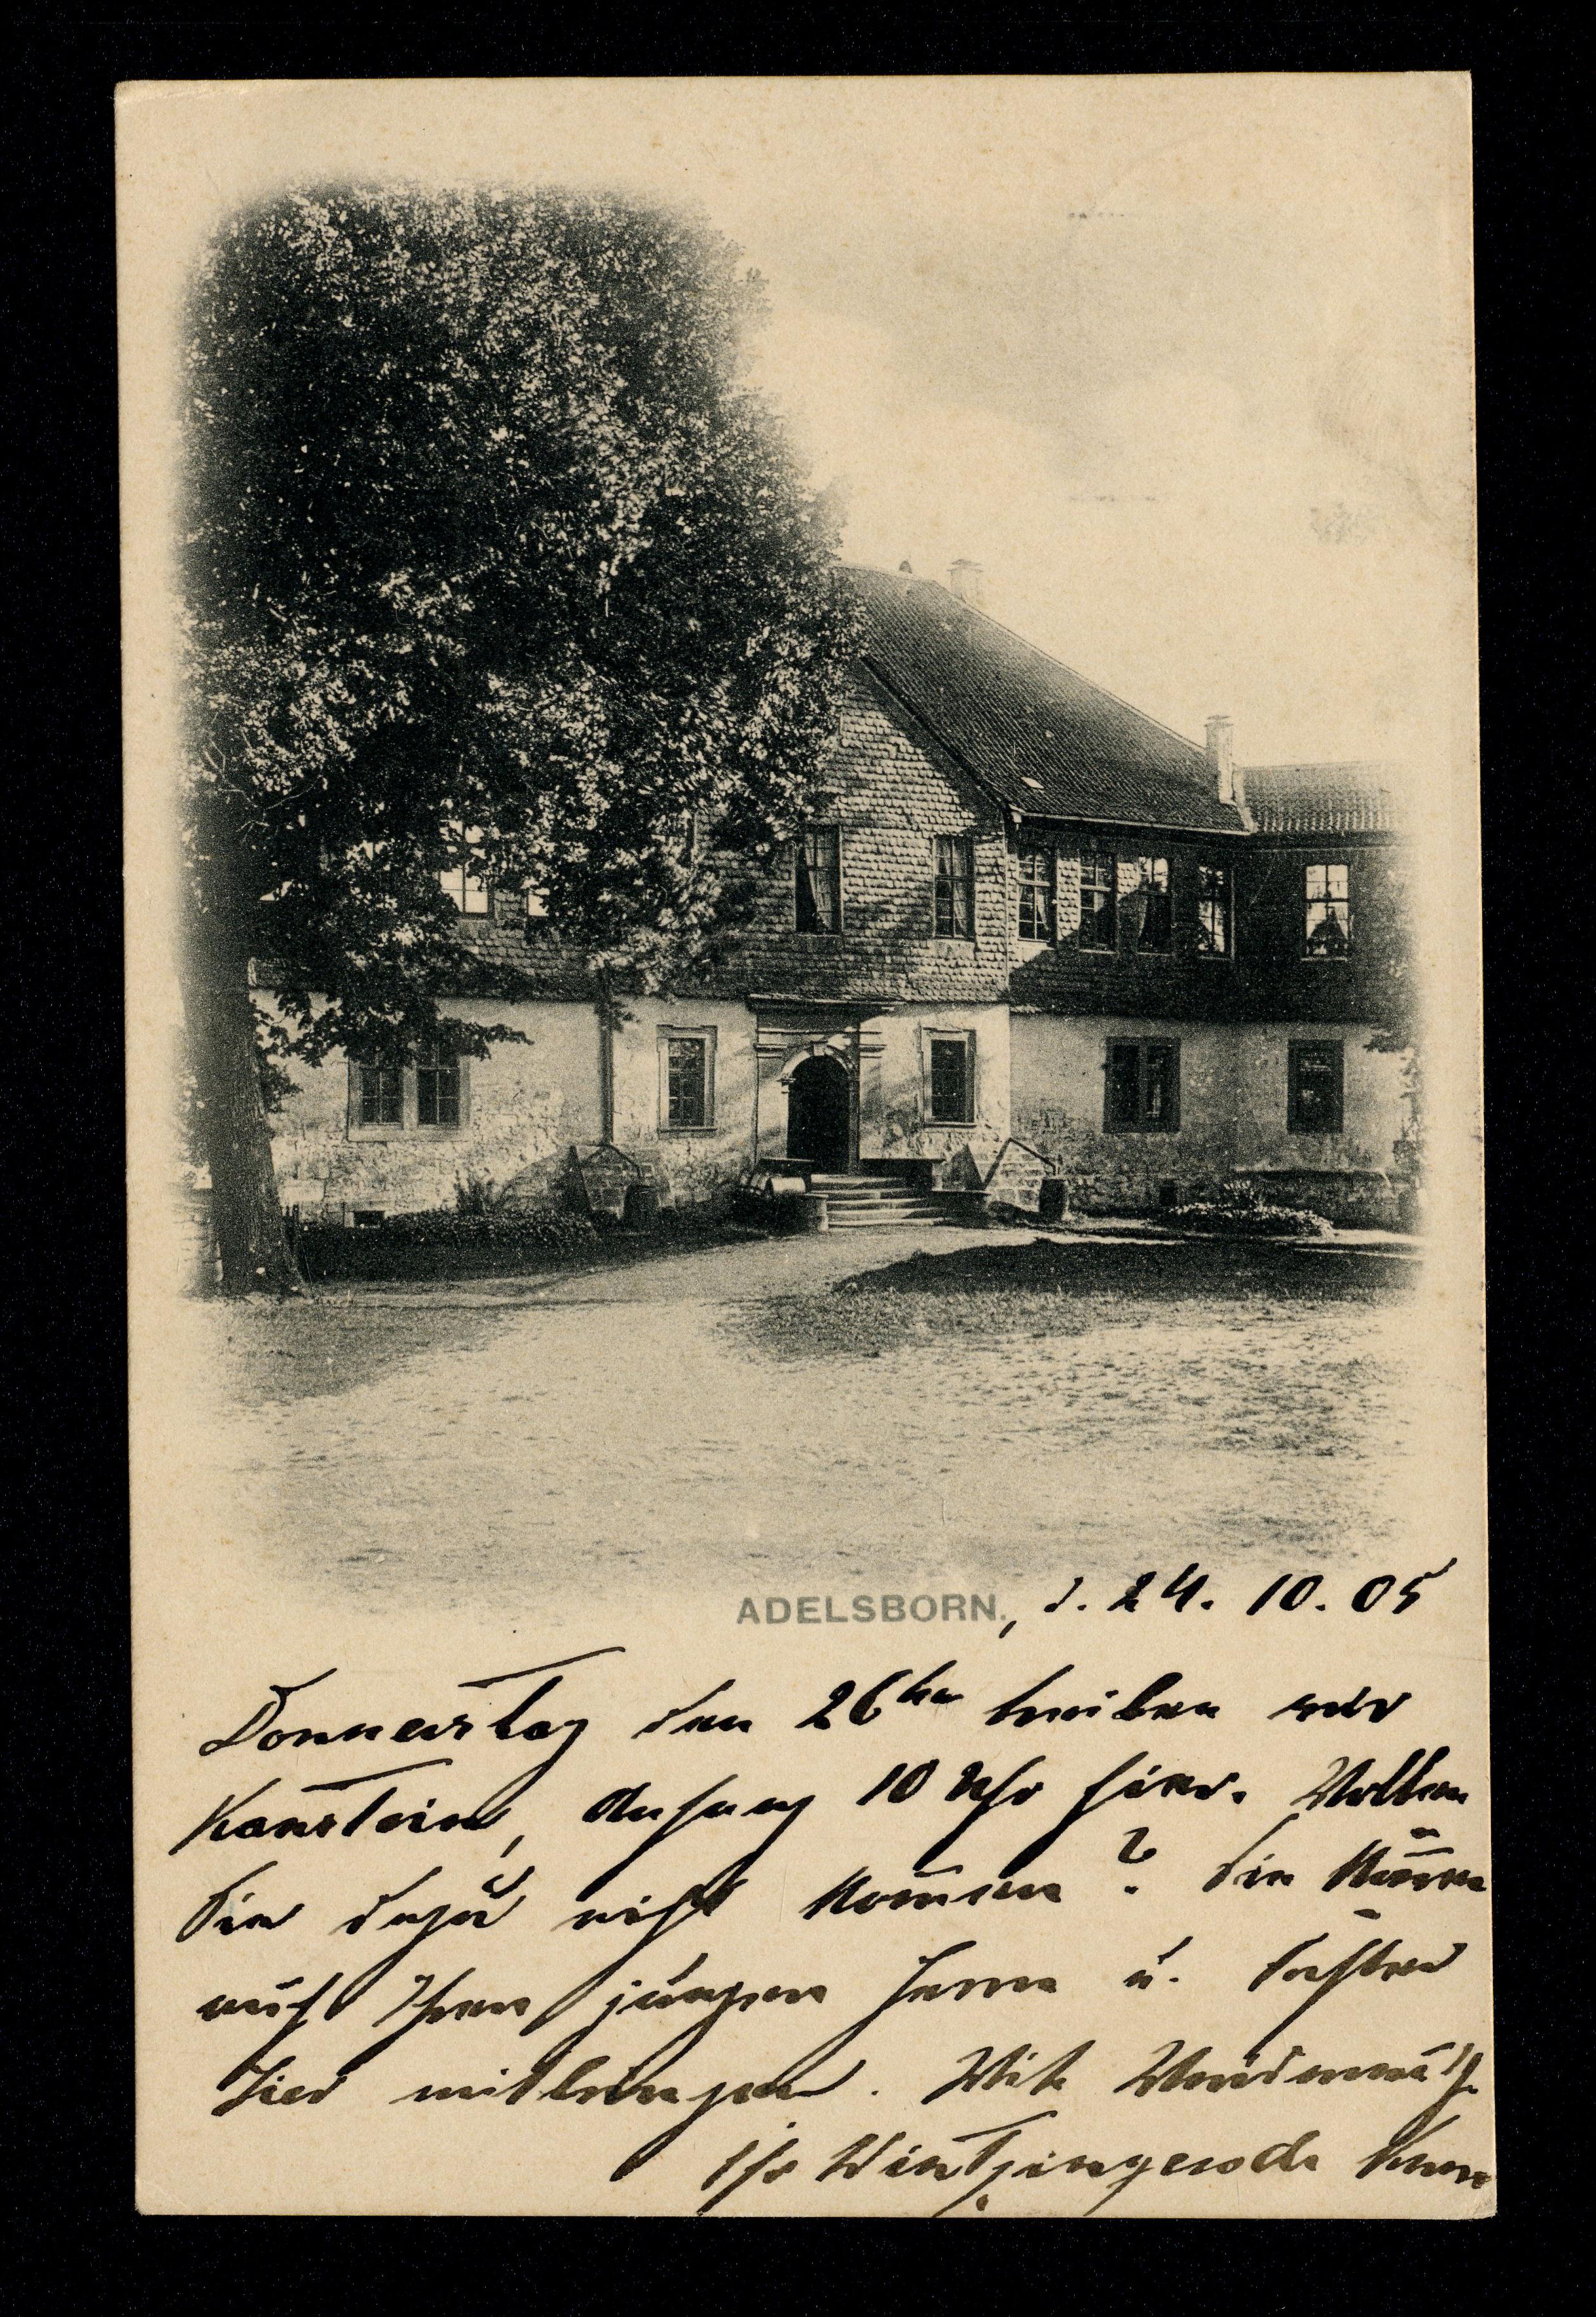 ADELSBORN., d. 24. 10. 05
Donnerstag den 26ten treiben wir
Kanstein, Anfang 10 Uhr hier. Wollen
Sie dazu nicht kom̄en? Sie kön̄en
auch Ihren jungen Herrn u.
hier mitbringen. Mit Waidmannsh.
Ihr Wintzingeroda Knorr